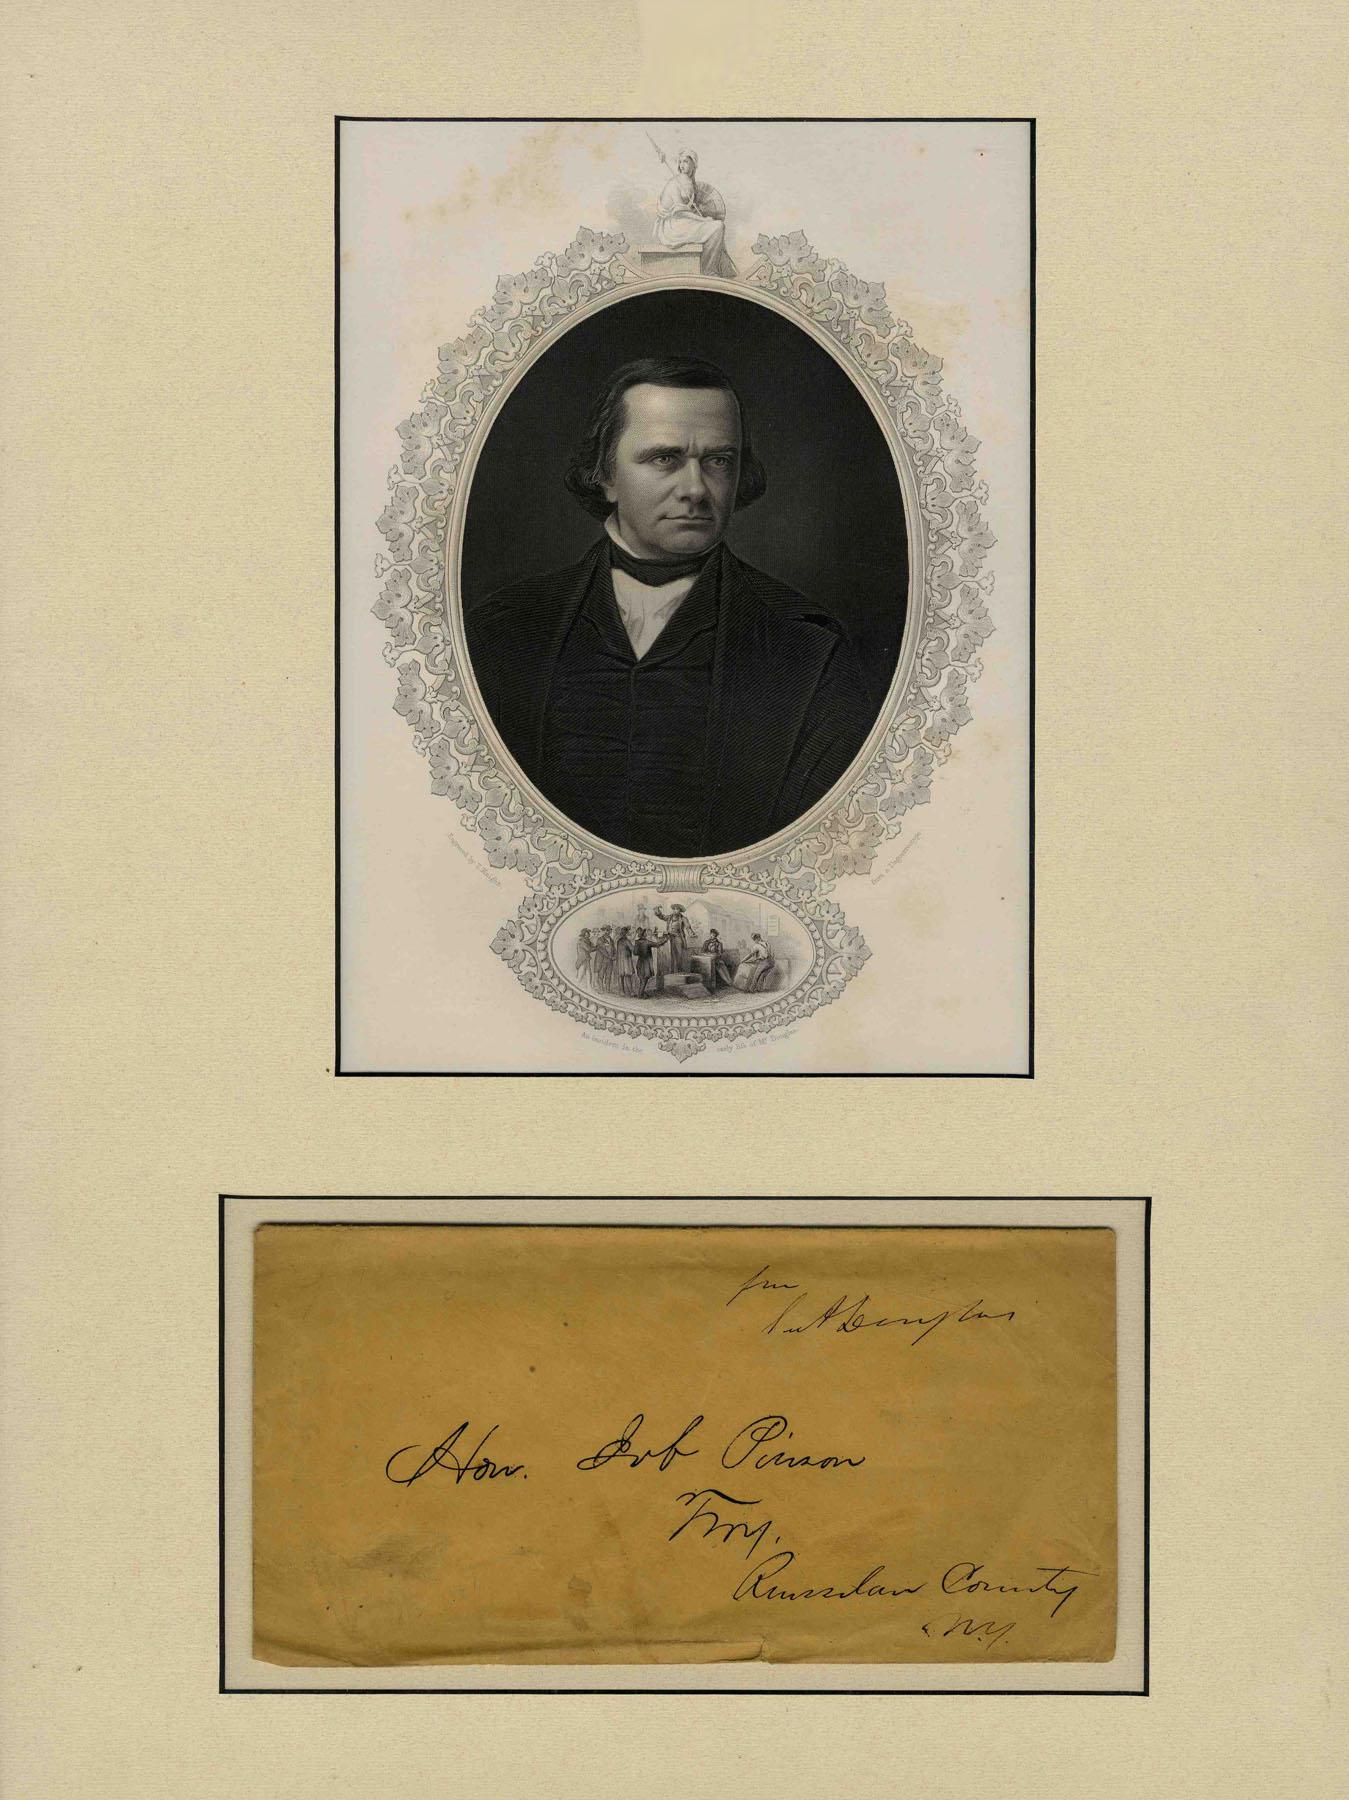 Engraved by T. Knight.
from a Daguerreotype
An incident in the early life of Mr Douglas.
free
S A Douglas
Hon. Job Pierson
Troy.
Rensselaer County
N.Y.